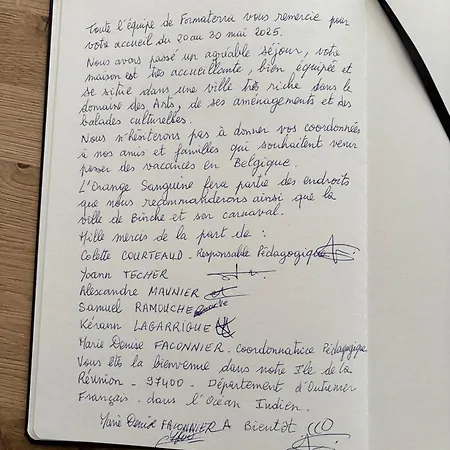 Toute l'équipe de Formaterra vous remercie pour
votre accueil du 20 au 30 mai 2025.
Nous avons passé un agréable séjour, votre
maison est très accueillante, bien équipée et
se situe dans une ville très riche dans le
domaine des Arts, de ses aménagements et des
balades culturelles.
Nous n'hésiterons pas à donner vos coordonnées
à nos amis et familles qui souhaitent venir
passer des vacances en Belgique.
L'Orange Sanguine fera partie des endroits
que nous recommanderons ainsi que la
ville de Binche et son carnaval.
Mille mercis de la part de :
Colette COURTEAUD. Responsable Pédagogique
Yoann TECHER
Alexandre MAUNIER
Samuel RAMOUCHE
Kérann LAGARRIGUE
Marie Denise FACONNIER. Coordonnatrice Pédagogique
Vous êtes la bienvenue dans notre Ile de la
Réunion - 97400 - Département d'Outremer
Français. dans l'Océan Indien.
Marie Denise FACONNIER A Bientôt